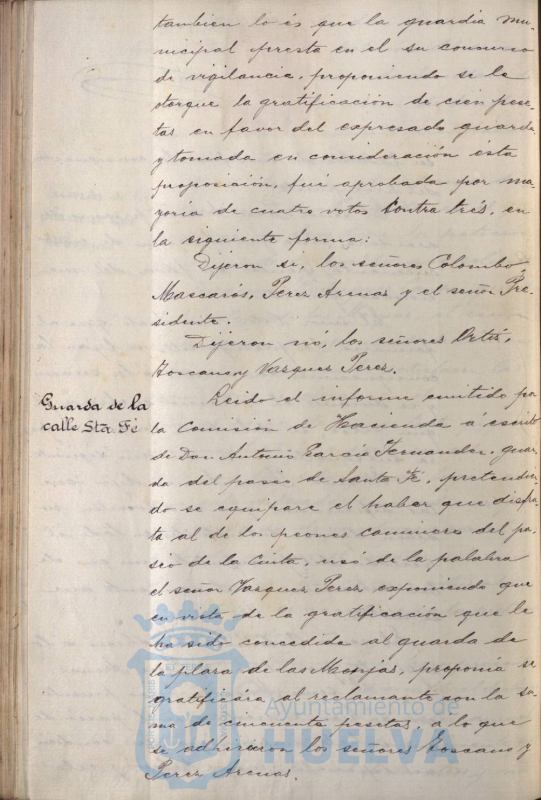 tambien lo és que la guardia mu-
nicipal presta en el su concurso
de vigilancia, proponiendo se le
otorgue la gratificación de cien pese-
tas en favor del expresado guarda
y tomada en consideración esta
proposición, fué aprobada por ma-
yoria de cuatro votos contra trés, en
la siguiente forma:
Dijeron si, los señores Colombo,
Mascarós, Perez Arenas y el señor Pre-
sidente.
Dijeron nó, los señores Ortiz,
Toscano y Vazquez Perez.
Guarda de la
calle Sta. Fé
Leido el informe emitido por
la Comisión de Hacienda á escrito
de Don Antonio García Fernandez, guar-
da del paseo de Santa Fé, pretendien-
do se equipare el haber que disfru-
ta al de los peones camineros del pa-
seo de la Cinta, usó de la palabra
el señor Vazquez Perez exponiendo que
en vista de la gratificación que le
ha sido concedida al guarda de
la plaza de las Monjas, proponia se
gratificára al reclamante con la su-
ma de cincuenta pesetas, a lo que
se adhirieron los señores Toscano y
Perez Arenas.
Ayuntamiento de
HUELVA